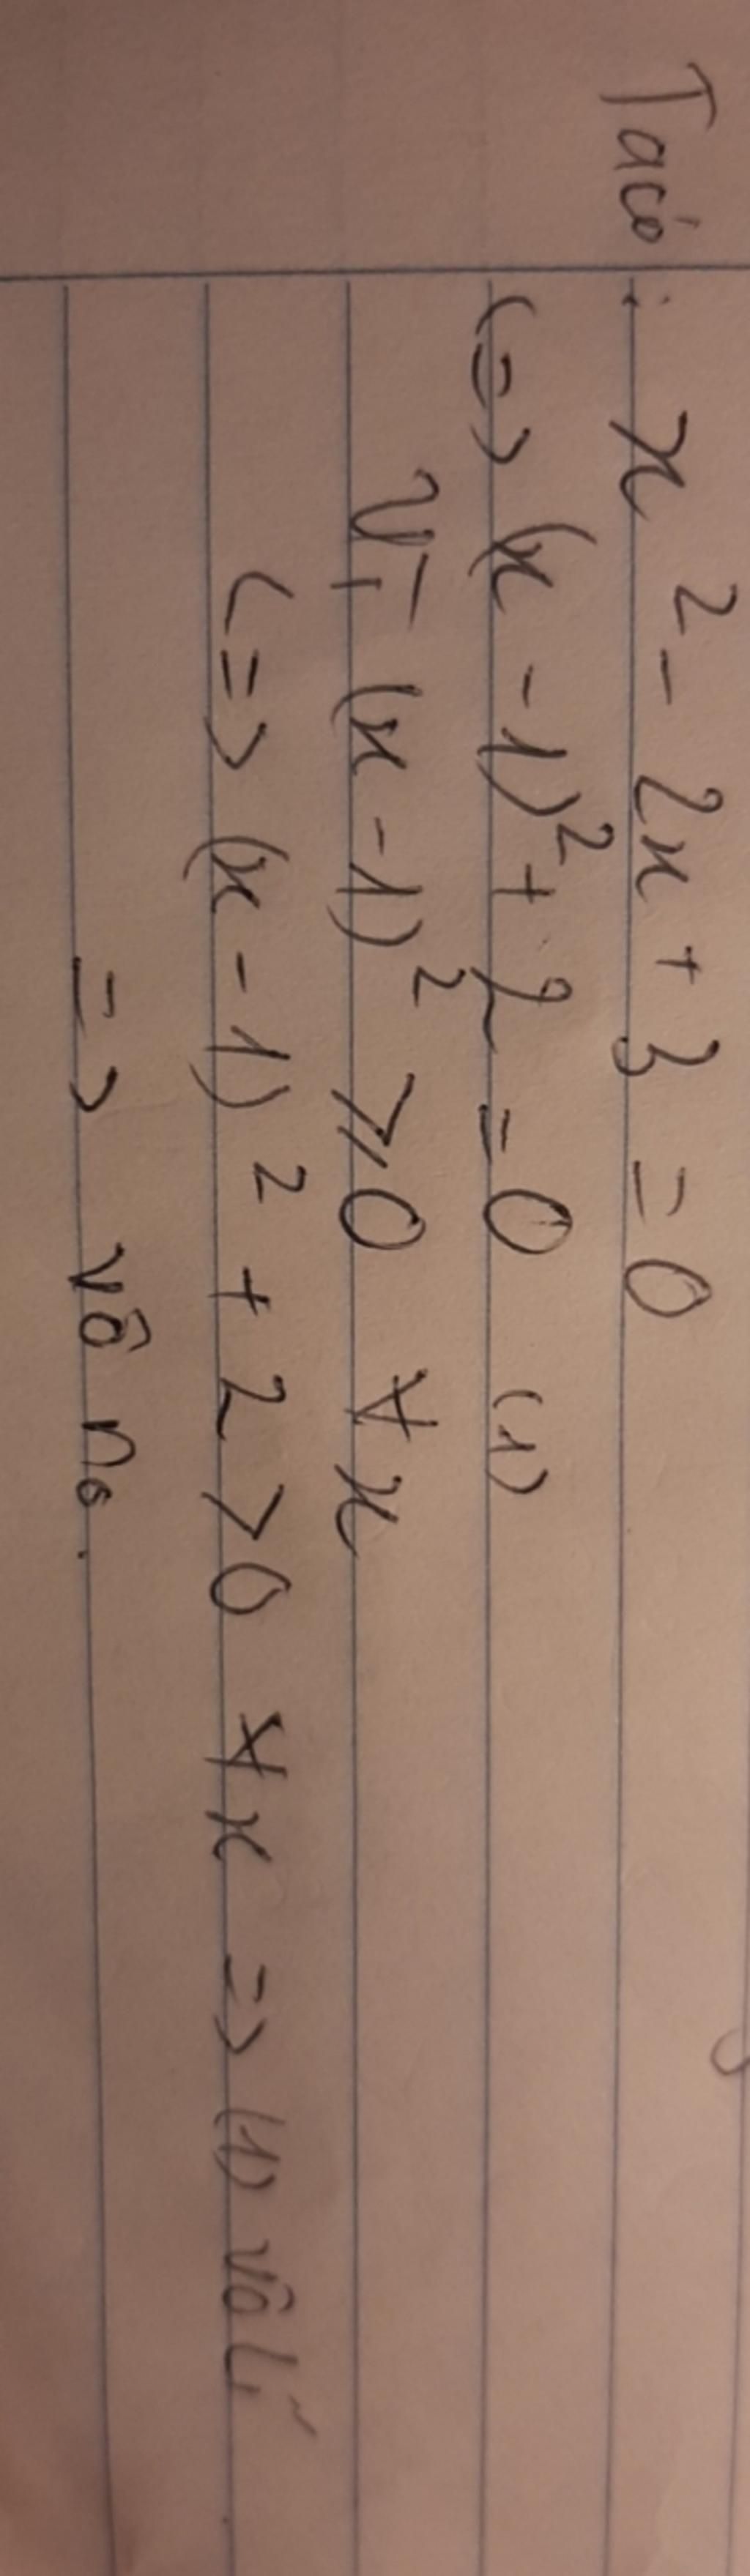 Ta có: x² - 2x + 3 = 0
<=> (x - 1)² + 2 = 0 (1)
Vì (x - 1)² ⩾ 0 ∀ x
<=> (x - 1)² + 2 > 0 ∀ x => (1) vô lí
=> vô no.